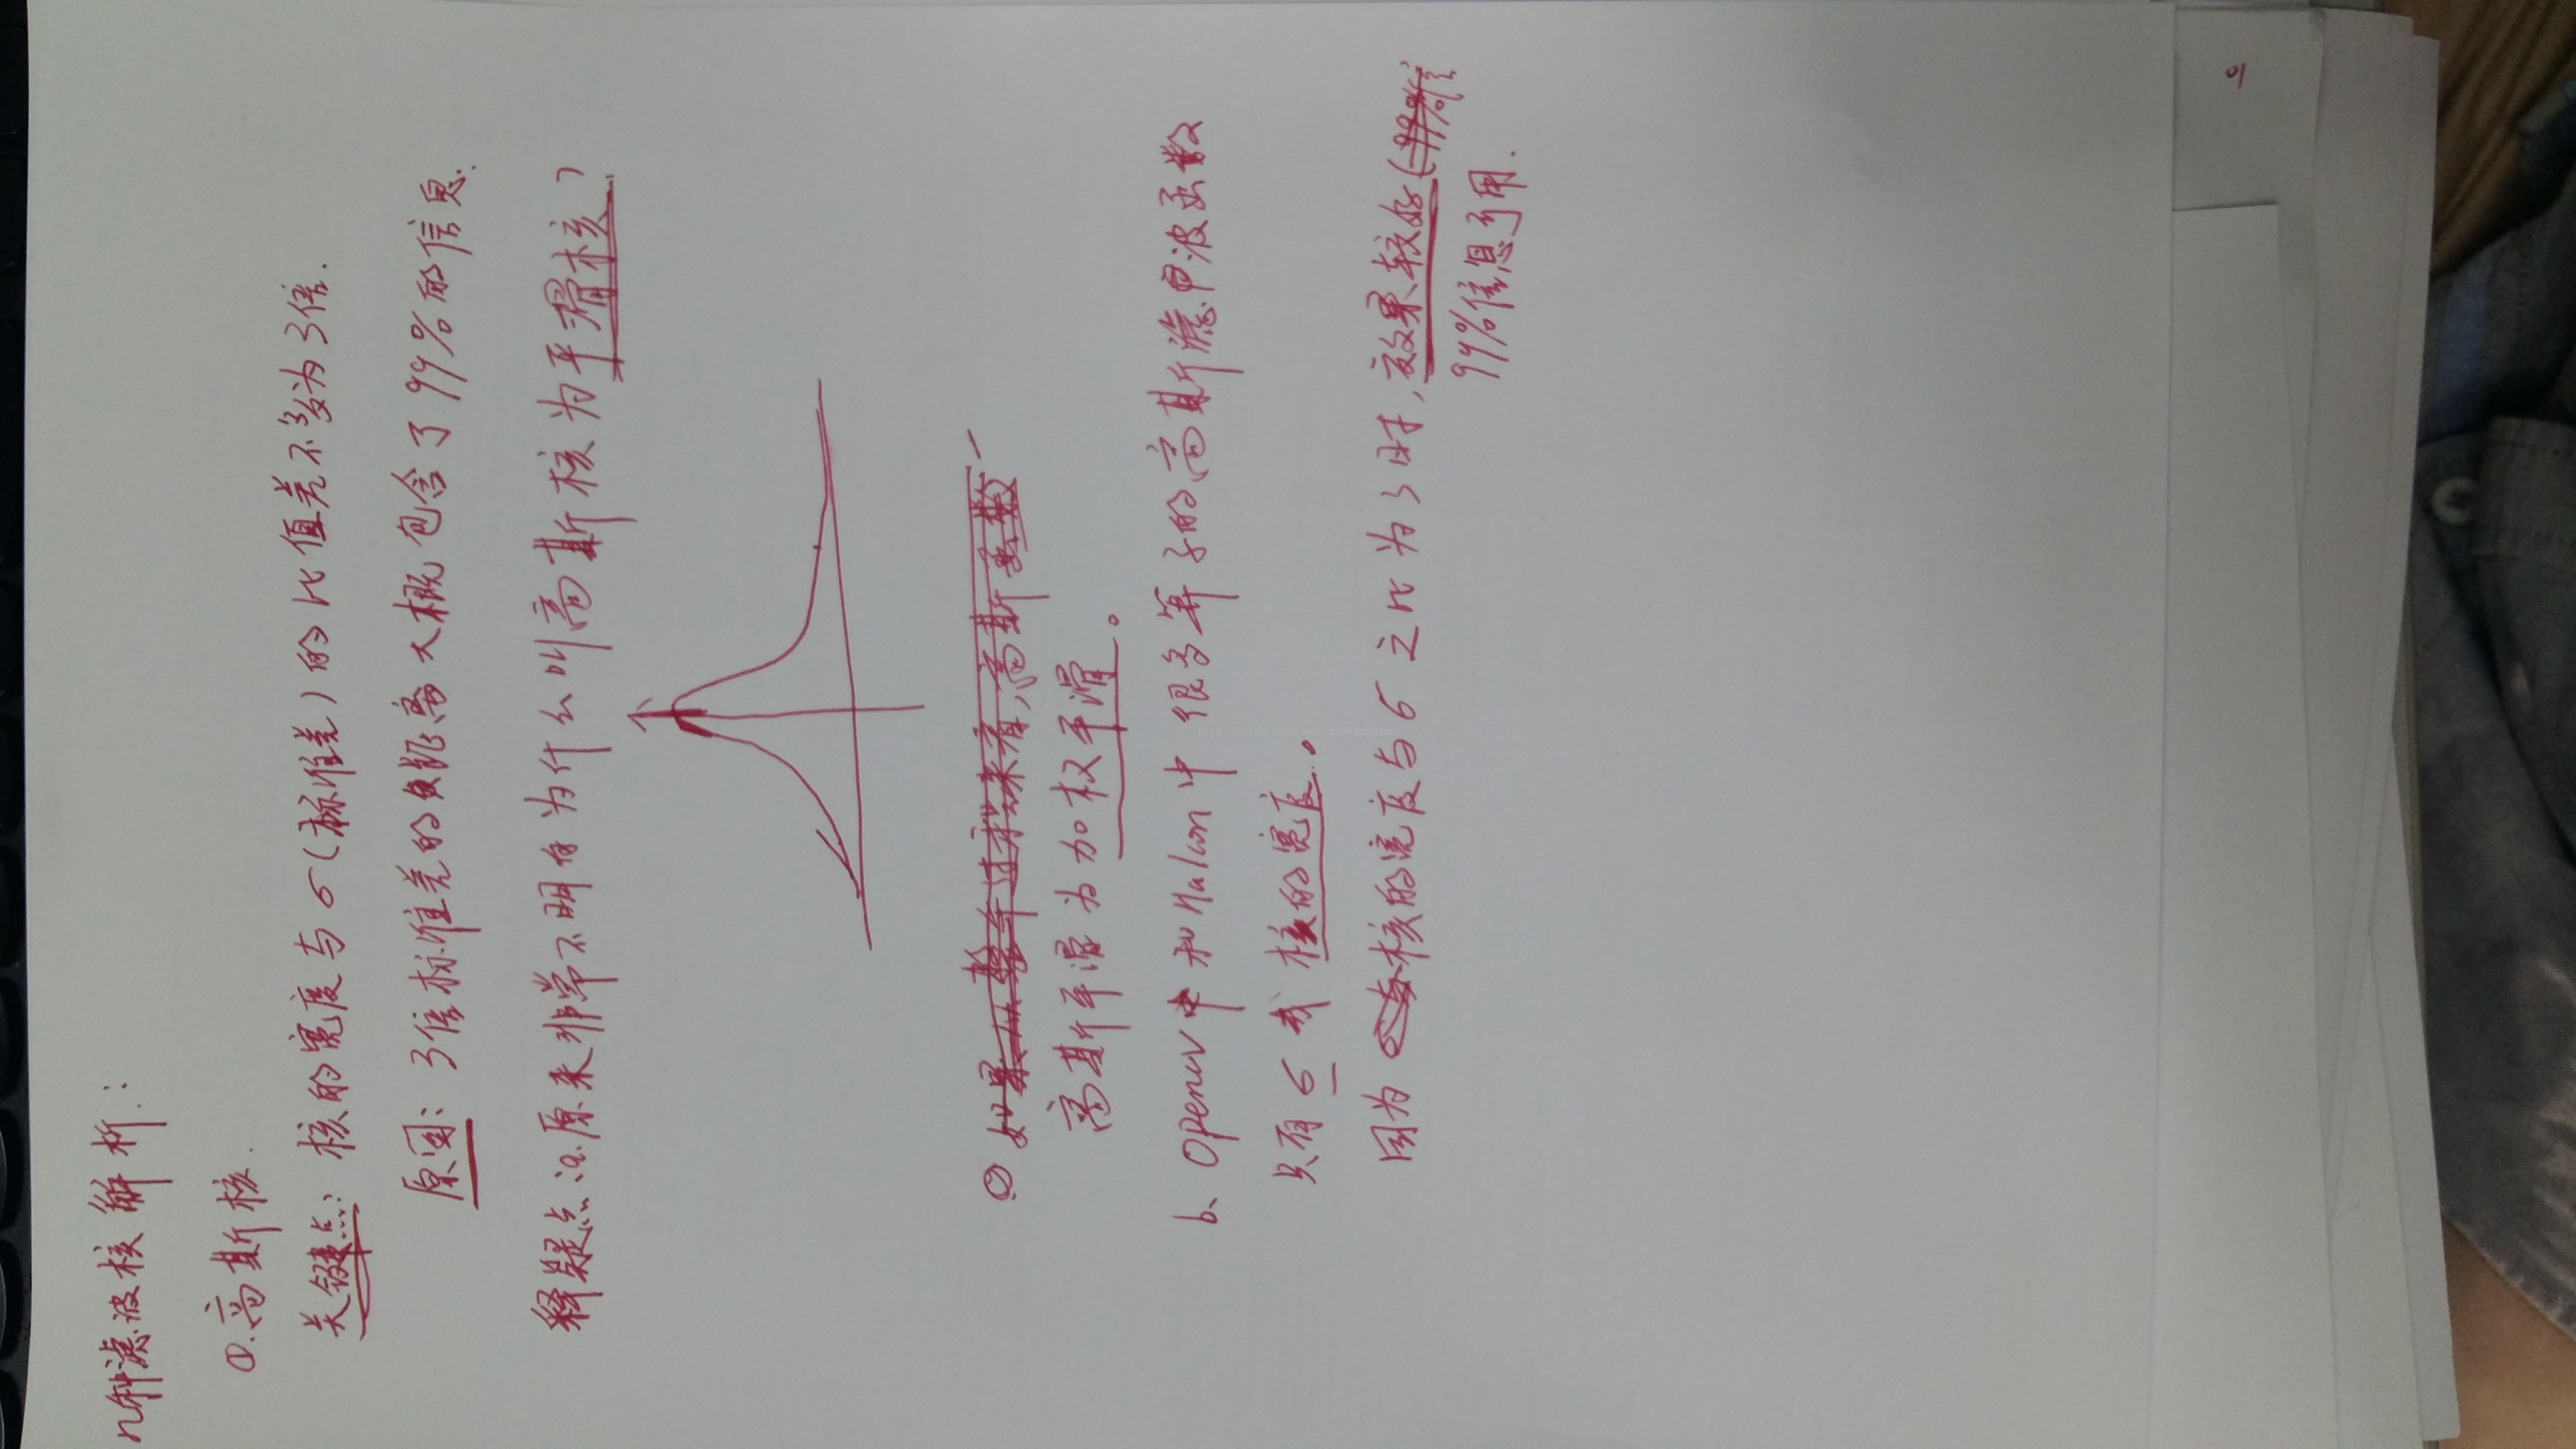 几种滤波核解析:
①.高斯核.
关键点: 核的宽度与σ(标准差)的比值差不多为3倍.
原因: 3倍标准差的距离大概包含了99%的信息.
释疑点:a.原来非常不明白为什么叫高斯核为平滑核?
如果从整个过程来看,高斯函数
高斯平滑为加权平滑。
b、opencv中和Halcon中很多算子的高斯滤波函数
只有σ或核的宽度。
因为核的宽度与σ之比为3时,效果较好(99%信
99%信息可用.
10